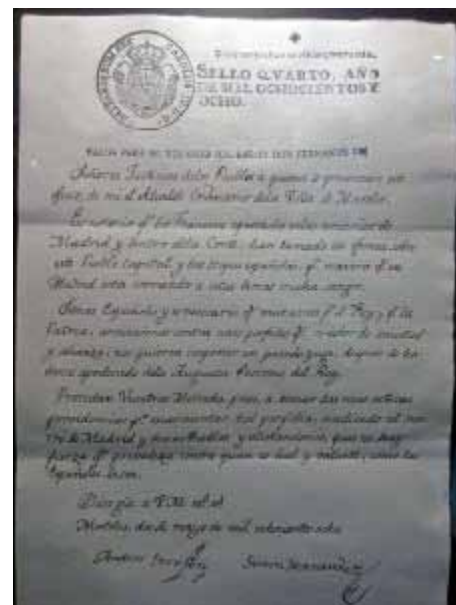 SELLO QVARTO, AÑO
DE MIL OCHOCIENTOS Y
OCHO.
Señores Justicias de los Pueblos a quienes se presentare este
oficio, de mi el Alcalde Ordinario de la Villa de Mostoles.
Es notorio qe los Franceses apostados en las cercanias de
Madrid y dentro de la Corte, han tomado la ofensa sobre
este Pueblo capital y las tropas españolas; qe manera qe en
Madrid esta corriendo a estas horas mucha sangre.
Somos Españoles y es necesario qe muramos pr el Rey y pr la
Patria, armandonos contra unos perfidos qe so color de amistad
y alianza, nos quieren imponer un pesado yugo, despues de haberse
apoderado de la Augusta Persona del Rey.
Procedan Vuestras Mercedes, pues, a tomar las mas activas
providencias pa escarmentar tal perfidia, acudiendo al socorro
de Madrid y demas Pueblos y alentandonos, pues no hay
fuerza qe prevalezca contra quien es leal y valiente, como los
Españoles lo son.
Dios gde a V.M. ms as
Mostoles, dos de mayo de mil ochocientos ocho
Andres Torrejon Simon Hernandez